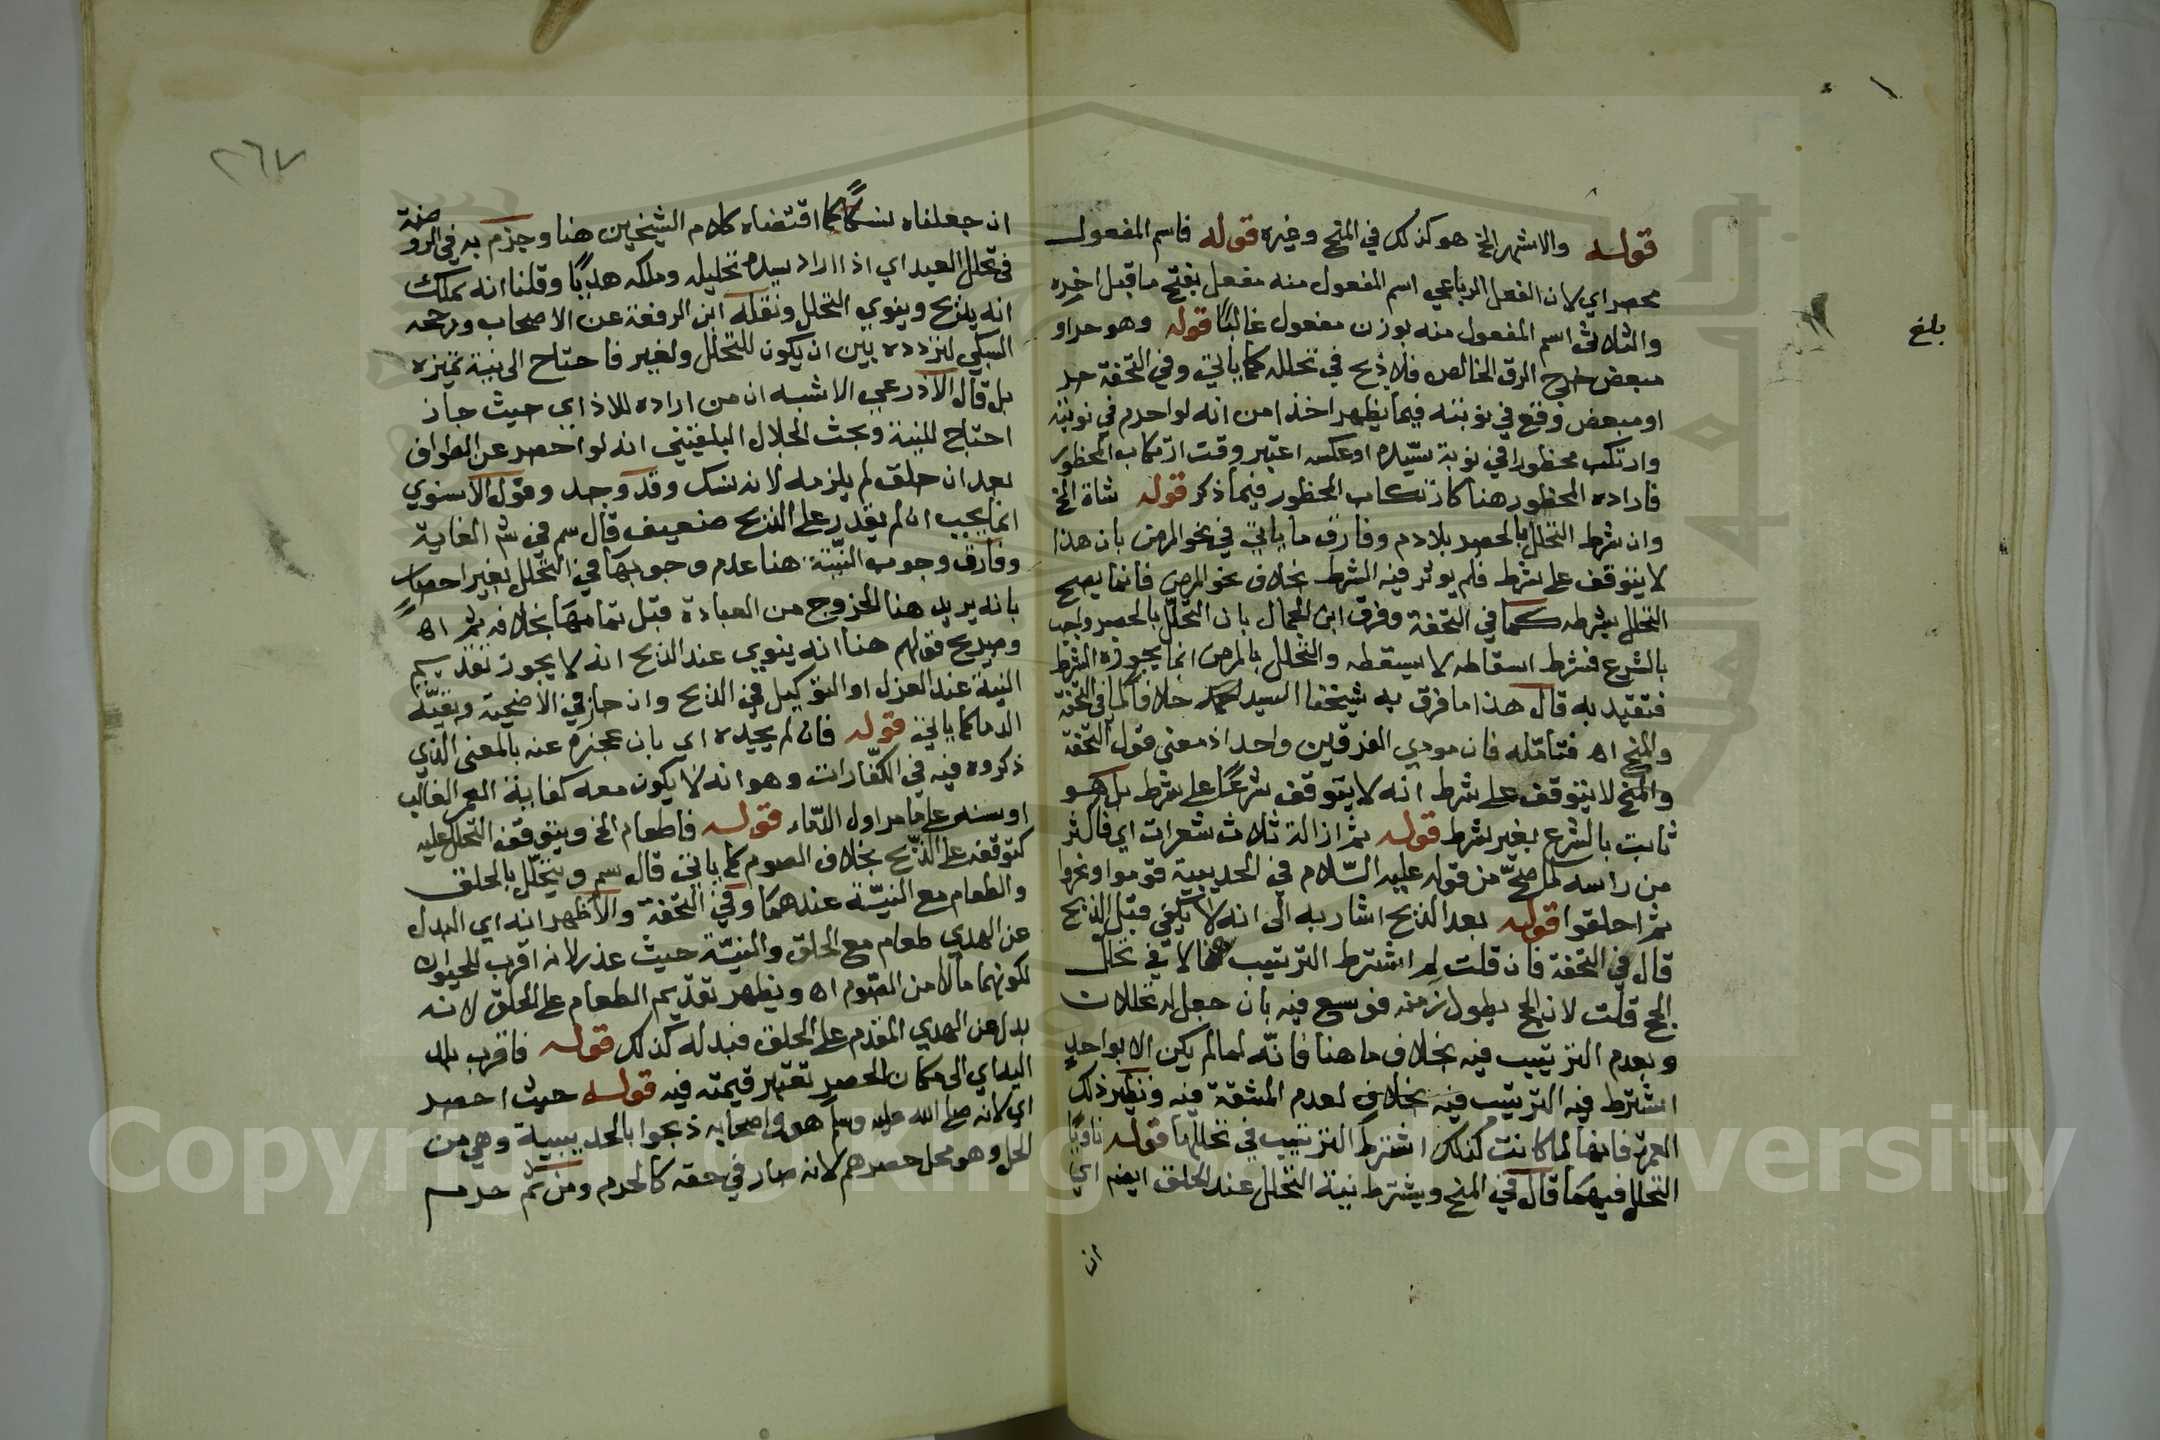 قوله والاشهر الخ هو كذلك في المنح وغيره قوله فاسم المفعول
محصر اي لان الفعل الرباعي اسم المفعول منه مفعل بفتح ما قبل اخره
والثلاثي اسم المفعول منه بوزن مفعول غالبًا قوله وهو حر او
مبعض خرج الرق الخالص فلا ذبح في تحلله كما ياتي وفي التحفة حر
او مبعض وقع في نوبته فيما يظهر اخذا من انه لو احرم في نوبته
وارتكب محظورا في نوبة سيّده او عكس اعتبر وقت ارتكاب المحظور
فارادة المحظور هنا كارتكاب المحظور فيما ذكر قوله شاة الخ
وان شرط التحلل بالحصر بلا دم وفارق ما ياتي في نحو المرض بان هذا
لا يتوقف على شرط فلم يوثر فيه الشرط بخلاف نحو المرض فانما يصح
التحلل بشرطه كما في التحفة وفرق ابن الجمال بان التحلل بالحصر واجب
بالشرع فشرط اسقاطه لا يسقطه والتحلل بالمرض انما يجوزه الشرط
فتقيد به قال هذا ما فرق به شيخنا السيد خلافا لما في التحفة
والمنح اه فتامّله فان مودي الفرقين واحد اذ معنى قول التحفة
والمنح لا يتوقف على شرط انه لا يتوقف شرعًا على شرط بل هو
ثابت بالشرع بغير شرط قوله ثم ازالة ثلاث شعرات اي فاكثر
من راسه لما صحّ من قوله عليه السّلام في الحديبية قوموا وانحروا
ثم احلقوا قوله بعد الذبح اشار به الى انه لا يكفي قبل الذبح
قال في التحفة فان قلت لم اشترط الترتيب هنا لا في تحلل
الحج قلت لان الحج يطول زمنه فوسع فيه بان جعل له تحللان
وبعدم الترتيب فيه بخلاف ما هنا فانّه لما لم يكن الا بواحد
اشترط فيه الترتيب فيه بخلافه لعدم المشقة فيه ونظير ذلك
العمرة فانها لما كانت كذلك اشترط الترتيب في تحللها قوله ناويًا
التحلل فيهما قال في المنح ويشترط نية التحلل عند الحلق ايضه اي
ان
بلغ
٢٦٧
ان جعلناه نسكًا كما اقتضاه كلام الشيخين هنا وجزم به في الروضة
في تحلل العبد اي اذا اراد سيده تحليله وملكه هديًا وقلنا انه يملك
انه يذبح وينوي التحلل ونقله ابن الرفعة عن الاصحاب ورجحه
السبكي لتردده بين ان يكون للتحلل ولغيره فاحتاج الى نية تميزه
بل قال الاذرعي الاشبه ان من اراده للاذى حيث جاز
احتاج للنية وبحث الجلال البلقيني انه لو احصر عن الطواف
بعد ان حلق لم يلزمه لانه نسك وقد وجد وقول الاسنوي
انما يجب ان لم يقدر على الذبح ضعيف قال سم في شم الغاية
وفارق وجوب النيّة هنا عدم وجوبها في التحلل بغير احصار
بانه يريد هنا الخروج من العبادة قبل تمامها بخلافه ثم اه
وصريح قولهم هنا انه ينوي عند الذبح انه لا يجوز تقديم
النية عند العزل او التوكيل في الذبح وان جاز في الاضحية وبقيّة
الدما كما ياتي قوله فان لم يجده اي بان عجز عنه بالمعنى الذي
ذكروه فيه في الكفّارات وهو انه لا يكون معه كفاية العمر الغالب
او سنه على ما مر اول الدّماء قوله فاطعام الخ ويتوقف التحلل عليه
كتوقفه على الذبح بخلاف الصوم كما ياتي قال سم ويتحلل بالحلق
والطعام مع النيّة عندهما وفي التحفة والاظهر انه اي البدل
عن الهدي طعام مع الحلق والنيّة حيث عذر لانه اقرب للحيوان
لكونهما مالا من الصّوم اه ويظهر تقديم الطعام على الحلق لانه
بدل عن الهدي المقدم على الحلق فبدله كذلك قوله فاقرب بلاد
اليه اي الى مكان الحصر تعتبر قيمته فيه قوله حيث احصر
اي لانه صلى الله عليه وسلم هو واصحابه ذبحوا بالحديبية وهي من
الحل وهو محل حصرهم لانه صار في حقه كالحرم ومن ثم حرم